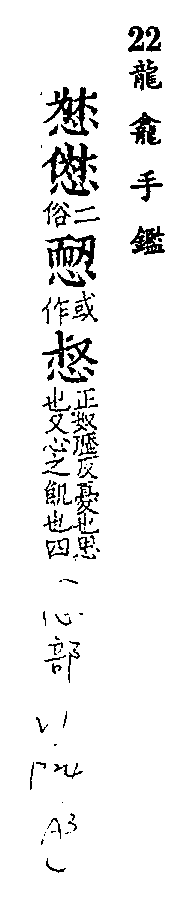 22龍龕手鑑
二俗
或作
惄正奴歷反憂也思也又心之飢也四
心部 V1 P24 A3